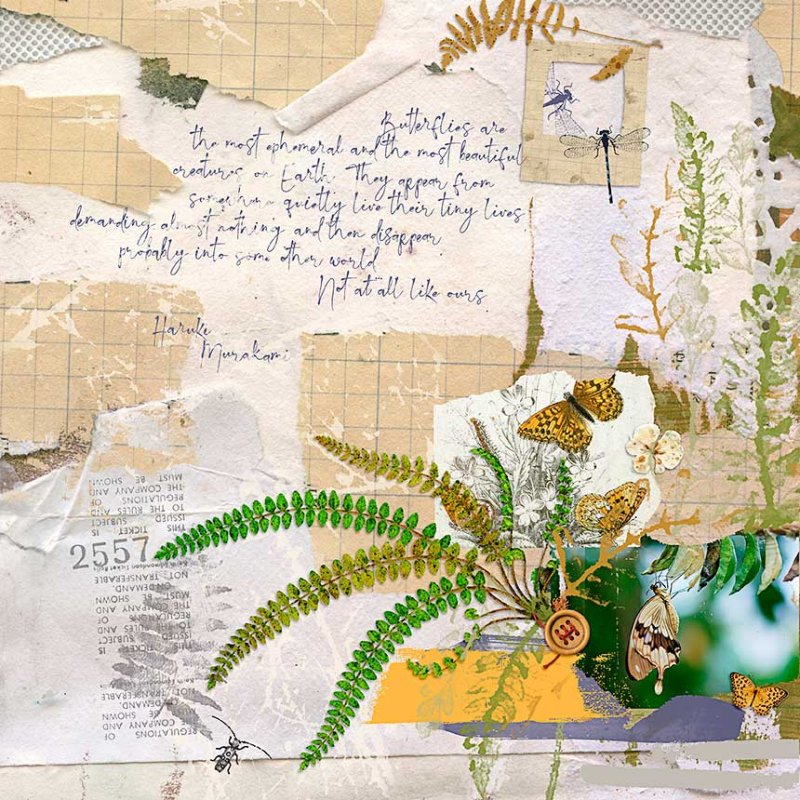 Butterflies are
the most ephemeral and the most beautiful
creatures on Earth. They appear from
quietly live their tiny lives
demanding almost nothing and then disappear
probably into some other world
Not at all like ours
Haruke
Murakami
MUST BE SHOWN
THE COMPANY AND
REGULATIONS OF
TO THE RULES AND
ISSUED SUBJECT
THIS TICKET IS
2557
NOT TRANSFERABLE
ON DEMAND.
MUST BE SHOWN
THE COMPANY AND
TO THE RULES AND
ISSUED SUBJECT
THIS TICKET IS
NOT TRANSFERABLE
ON DEMAND.
MUST BE SHOWN
THE COMPANY AND
REGULATIONS OF